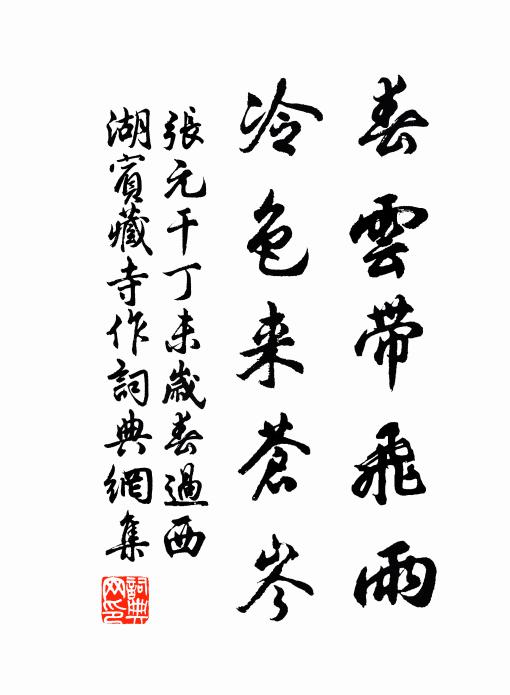 春雲帶飛雨
冷色來蒼岑
張元干丁未歲春過西
湖賓藏寺作詞典網集
詞典網印